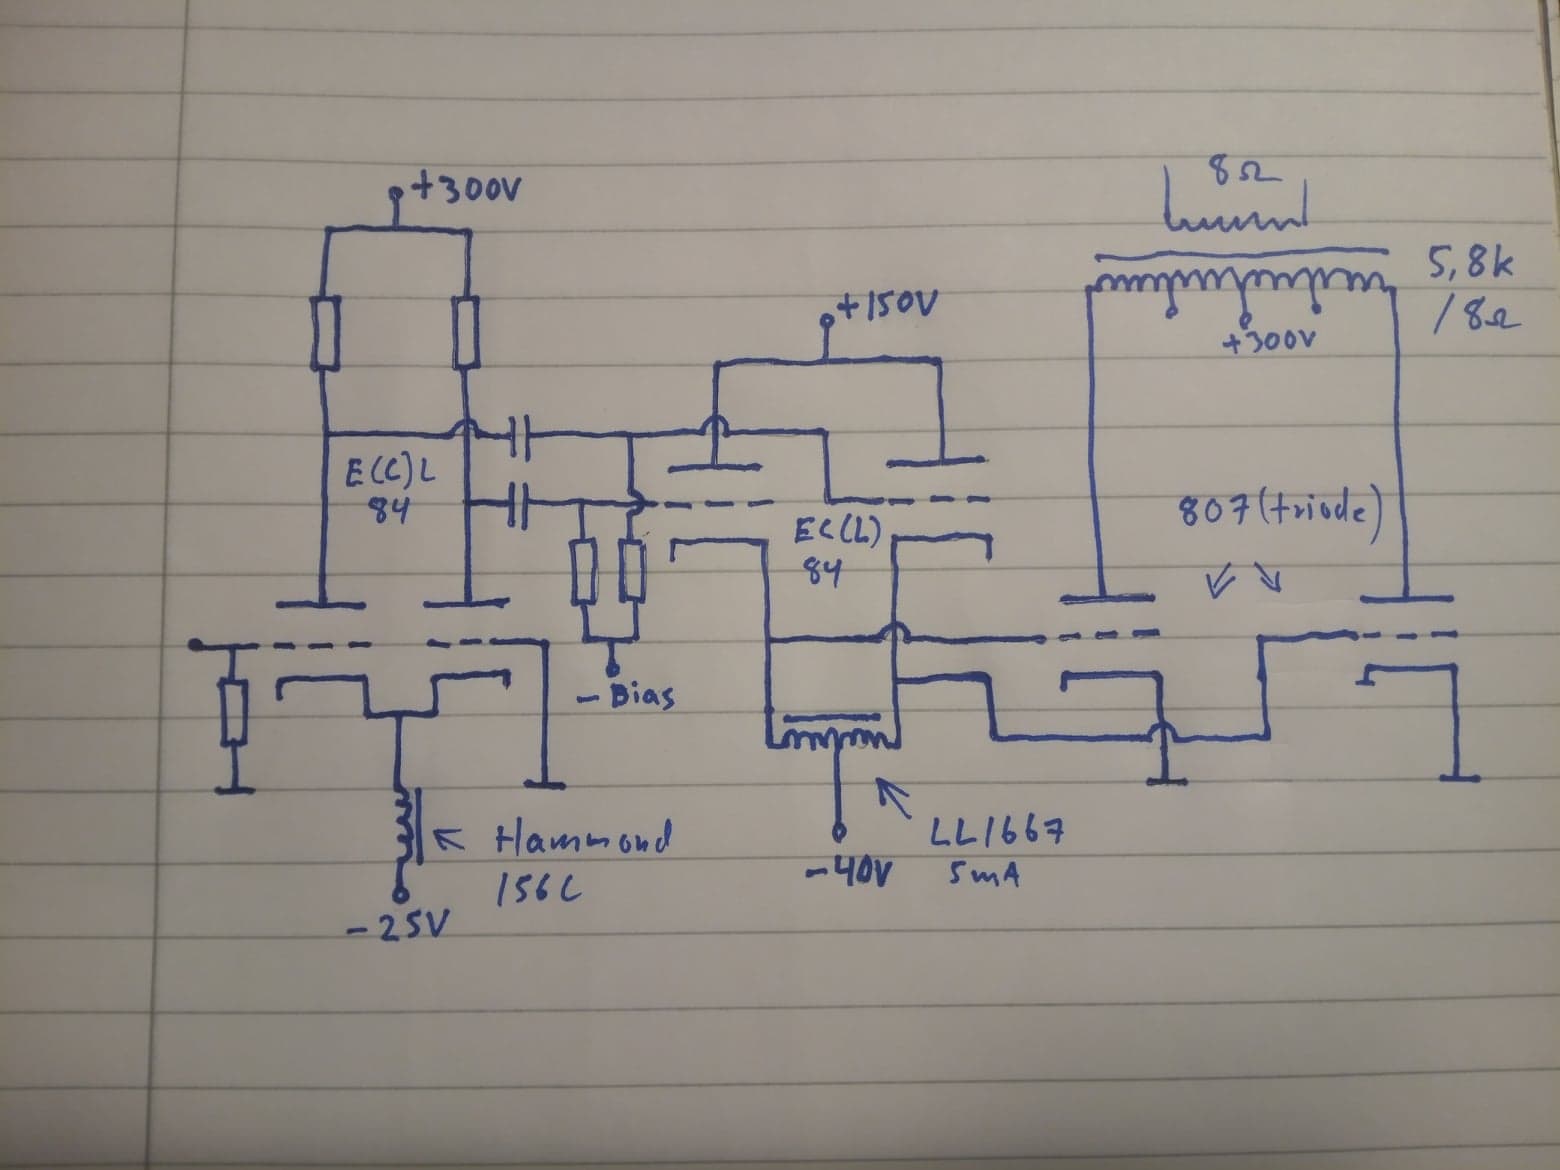 +300V
8Ω
5,8k
/8Ω
+150V
+300V
E(C)L
84
807(triode)
EC(L)
84
- Bias
Hammond
156C
-25V
LL1667
5mA
-40V